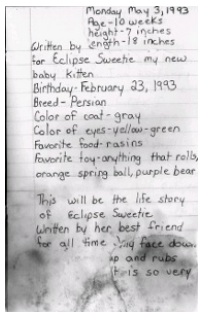 Monday May 3, 1993
Age-10 weeks
height-7 inches
Written by length-18 inches
for Eclipse Sweetie my new
baby kitten
Birthday-February 23, 1993
Breed-Persian
Color of coat-gray
Color of eyes-yellow-green
Favorite food-rasins
Favorite toy-anything that rolls,
orange spring ball, purple bear
This will be the life story
of Eclipse Sweetie
written by her best friend
for all time face down
up and rubs
it is so very